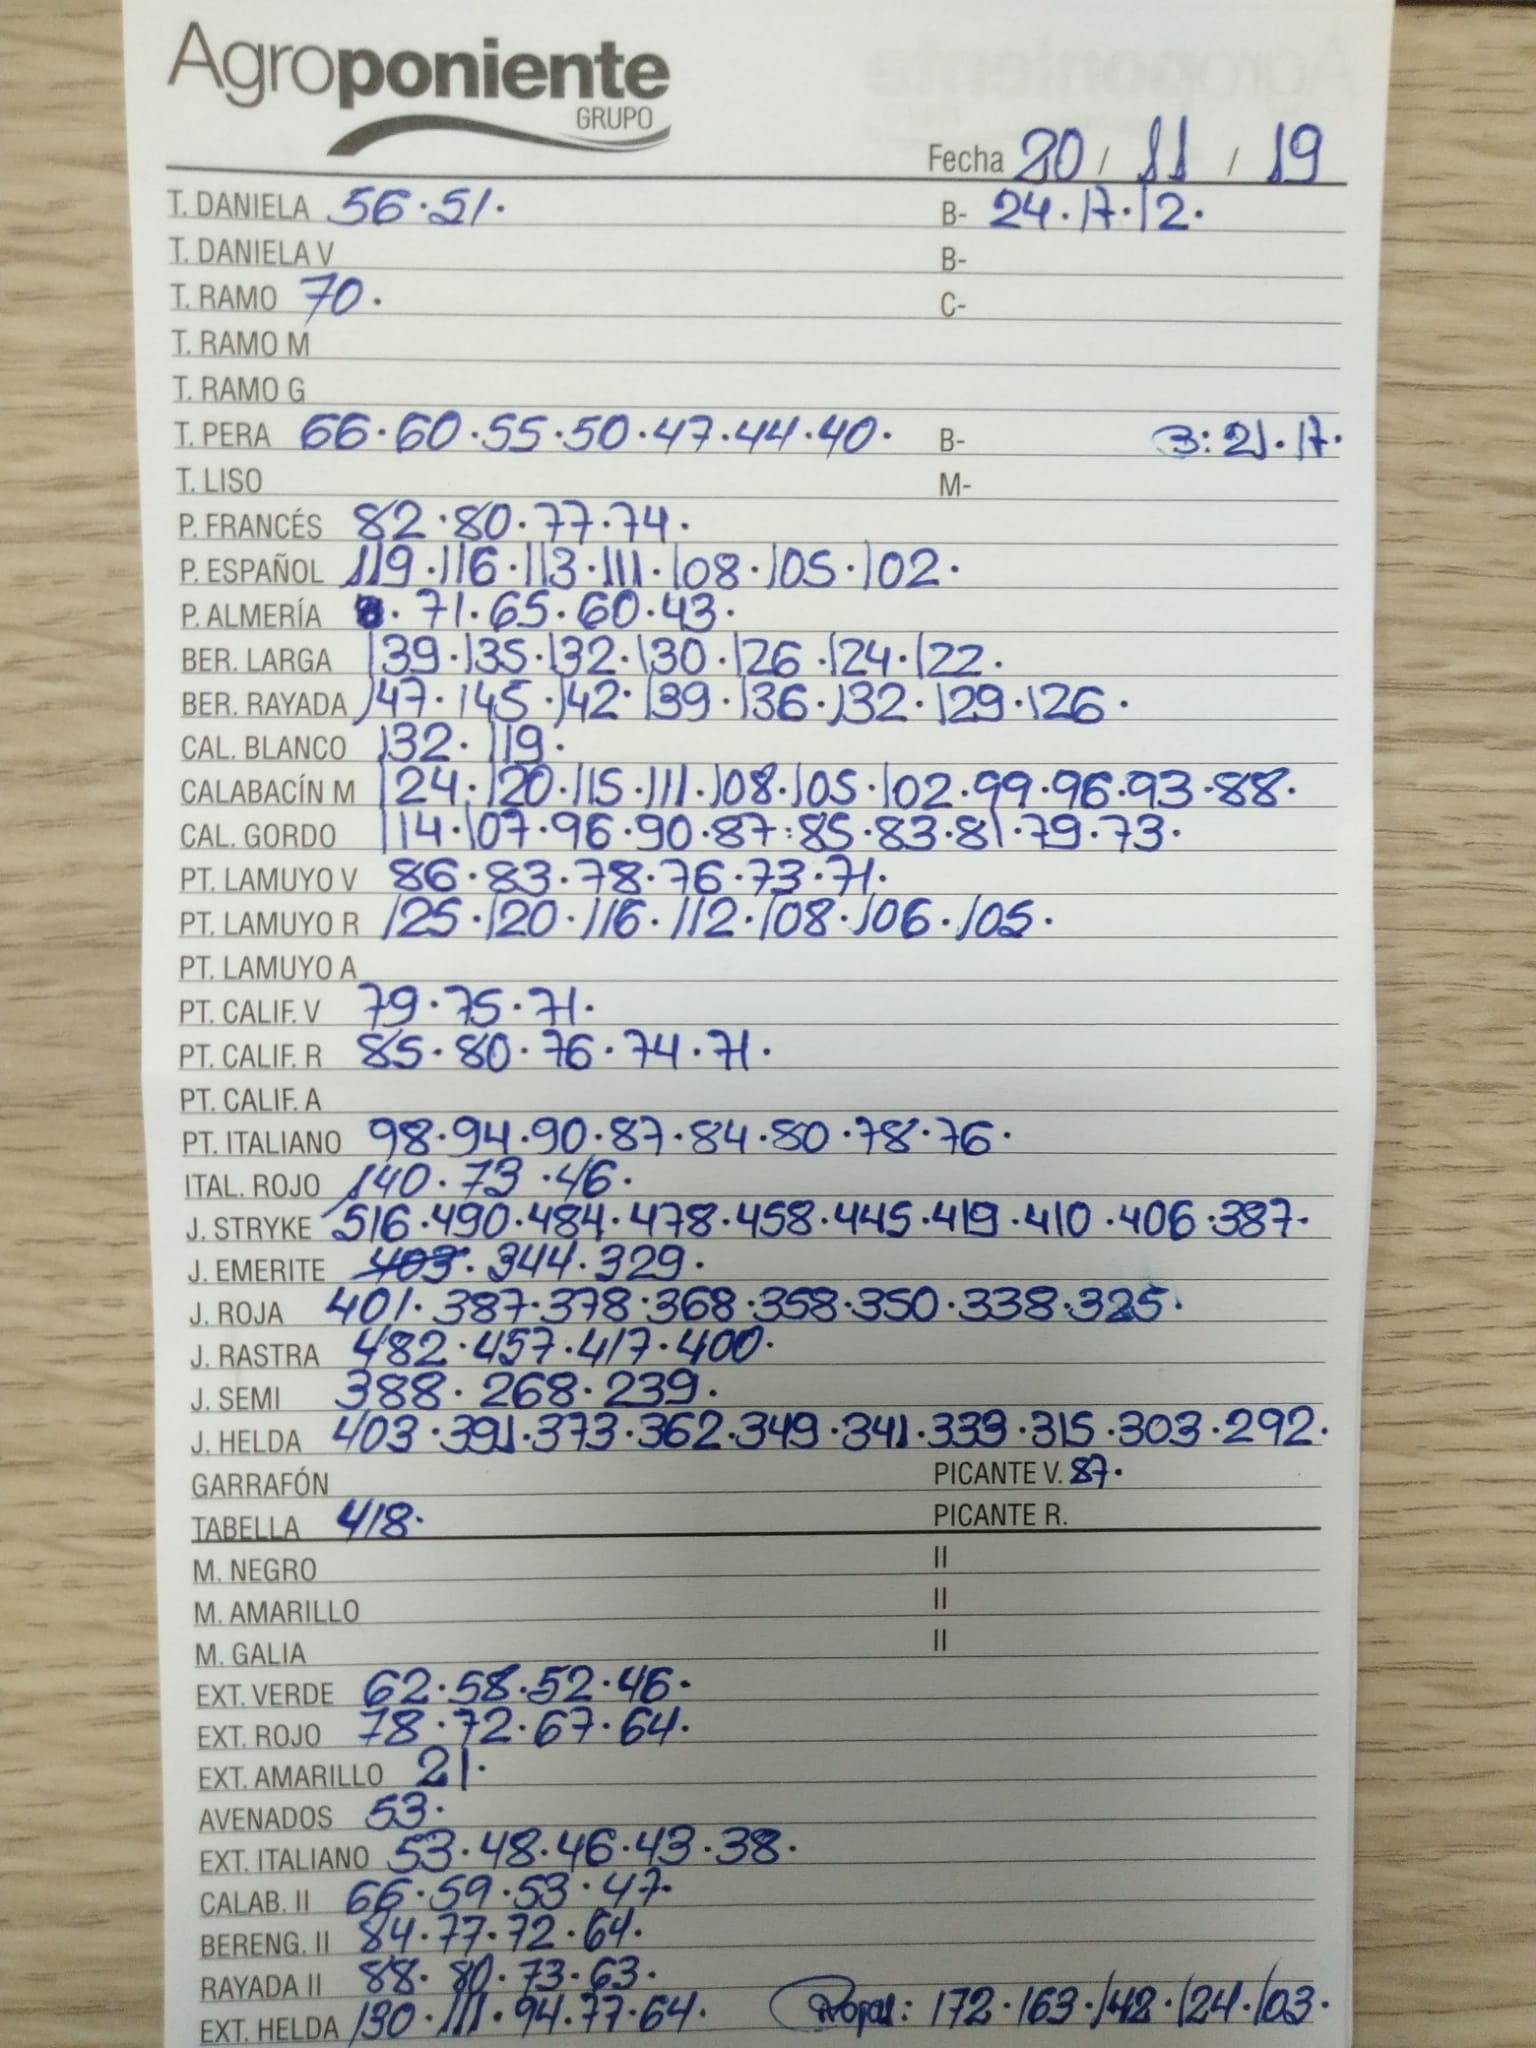 Agroponiente
GRUPO
Fecha 20 / 11 / 19
T. DANIELA 56.51. B- 24.17.12.
T. DANIELA V B-
T. RAMO 70. C-
T. RAMO M
T. RAMO G
T. PERA 66.60.55.50.47.44.40. B- 3:21.17.
T. LISO M-
P. FRANCÉS 82.80.77.74.
P. ESPAÑOL 119.116.113.111.108.105.102.
P. ALMERÍA 71.65.60.43.
BER. LARGA 139.135.132.130.126.124.122.
BER. RAYADA 147.145.142.139.136.132.129.126.
CAL. BLANCO 132.119.
CALABACÍN M 124.120.115.111.108.105.102.99.96.93.88.
CAL. GORDO 114.107.96.90.87.85.83.81.79.73.
PT. LAMUYO V 86.83.78.76.73.71.
PT. LAMUYO R 125.120.116.112.108.106.105.
PT. LAMUYO A
PT. CALIF. V 79.75.71.
PT. CALIF. R 85.80.76.74.71.
PT. CALIF. A
PT. ITALIANO 98.94.90.87.84.80.78.76.
ITAL. ROJO 140.73.46.
J. STRYKE 516.490.484.478.458.445.419.410.406.387.
J. EMERITE 403.344.329.
J. ROJA 401.387.378.368.358.350.338.325.
J. RASTRA 482.457.417.400.
J. SEMI 388.268.239.
J. HELDA 403.391.373.362.349.341.333.315.303.292.
GARRAFÓN PICANTE V. 87.
TABELLA 418. PICANTE R.
M. NEGRO II
M. AMARILLO II
M. GALIA II
EXT. VERDE 62.58.52.46.
EXT. ROJO 78.72.67.64.
EXT. AMARILLO 21.
AVENADOS 53.
EXT. ITALIANO 53.48.46.43.38.
CALAB. II 66.59.53.47.
BERENG. II 84.77.72.64.
RAYADA II 88.80.73.63.
EXT. HELDA 130.111.94.77.64. 172.163.142.124.103.